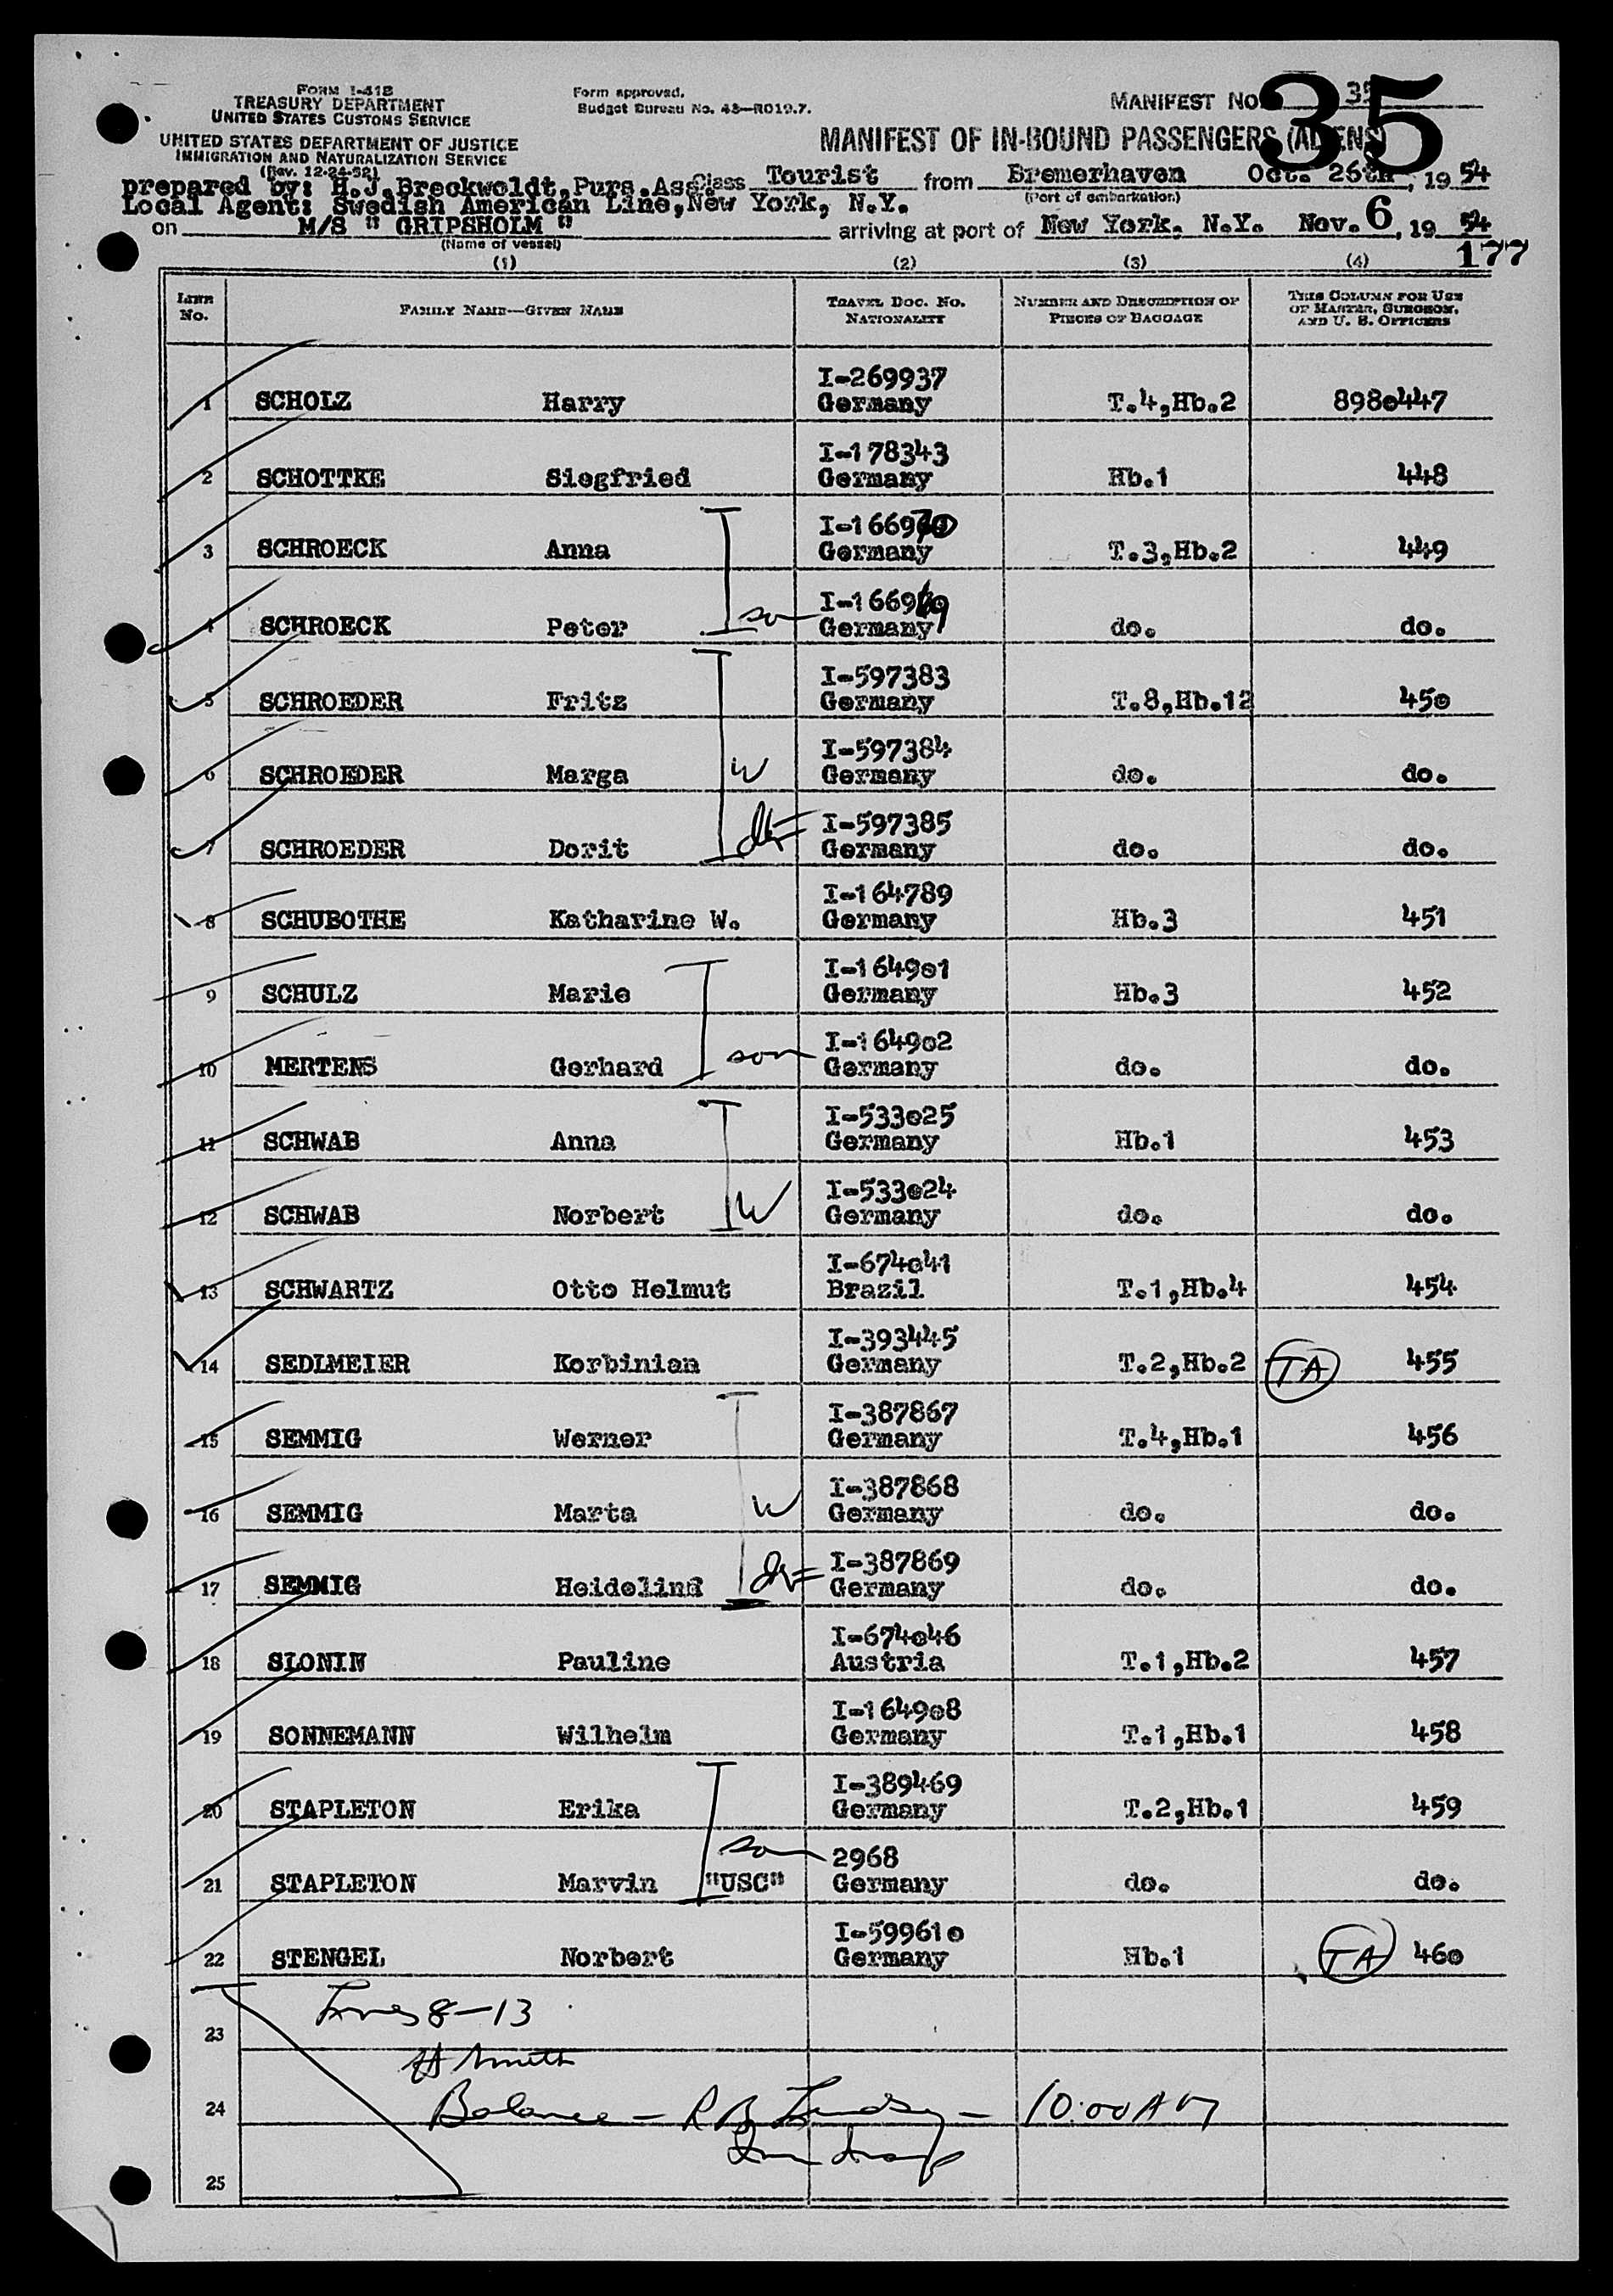 FORM I-418
TREASURY DEPARTMENT
UNITED STATES CUSTOMS SERVICE
UNITED STATES DEPARTMENT OF JUSTICE
IMMIGRATION AND NATURALIZATION SERVICE
(Rev. 12-24-52)
Form approved.
Budget Bureau No. 43—R019.7.
MANIFEST NO. 35
35
MANIFEST OF IN-BOUND PASSENGERS (ALIENS)
prepared by: H.J.Breckwoldt,Purs.Ass. Class Tourist from Bremerhaven Oct. 26th, 1954
(Port of embarkation)
Local Agent: Swedish American Line,New York, N.Y.
on M/S " GRIPSHOLM " arriving at port of New York, N.Y. Nov. 6, 1954
(Name of vessel)
177
(1) (2) (3) (4)
LINE NO. FAMILY NAME—GIVEN NAME TRAVEL DOC. NO. NATIONALITY NUMBER AND DESCRIPTION OF PIECES OF BAGGAGE THIS COLUMN FOR USE OF MASTER, SURGEON, AND U. S. OFFICERS
I-269937
1 SCHOLZ Harry Germany T.4,Hb.2 8980447
I-178343
2 SCHOTTKE Siegfried Germany Hb.1 448
I-166970
3 SCHROECK Anna Germany T.3,Hb.2 449
I-166969
4 SCHROECK Peter son Germany do. do.
I-597383
5 SCHROEDER Fritz Germany T.8,Hb.12 450
I-597384
6 SCHROEDER Marga W Germany do. do.
I-597385
7 SCHROEDER Dorit dtr Germany do. do.
I-164789
8 SCHUBOTHE Katharine W. Germany Hb.3 451
I-164901
9 SCHULZ Marie Germany Hb.3 452
I-164902
10 MERTENS Gerhard son Germany do. do.
I-533025
11 SCHWAB Anna Germany Hb.1 453
I-533024
12 SCHWAB Norbert W Germany do. do.
I-674041
13 SCHWARTZ Otto Helmut Brazil T.1,Hb.4 454
I-393445
14 SEDLMEIER Korbinian Germany T.2,Hb.2 TA 455
I-387867
15 SEMMIG Werner Germany T.4,Hb.1 456
I-387868
16 SEMMIG Marta W Germany do. do.
I-387869
17 SEMMIG Heidelind dtr Germany do. do.
I-674046
18 SLONIN Pauline Austria T.1,Hb.2 457
I-164908
19 SONNEMANN Wilhelm Germany T.1,Hb.1 458
I-389469
20 STAPLETON Erika Germany T.2,Hb.1 459
son 2968
21 STAPLETON Marvin "USC" Germany do. do.
I-599610
22 STENGEL Norbert Germany Hb.1 TA 460
Lines 8-13
23
Smith
24 Balance - R B Lindsey - 10:00 AM
25